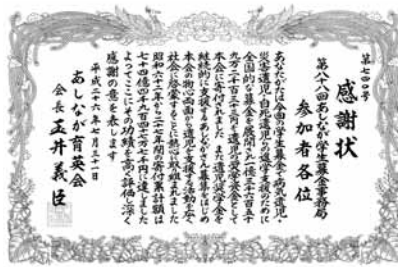 第七四〇号
感謝状
第八十八回あしなが学生募金事務局
参加者各位
あなたがたは全国の学生募金で病気遺児・
災害遺児・自死遺児らの進学支援のために
全国的な募金を展開され一億三千六百五十
九万二千百三十円を遺児の奨学資金として
本会に寄付されました また遺児奨学金を
継続的に支援するあしながさん募集をはじめ
本会の物心両面から遺児を支援する活動を広く
社会に啓蒙することに熱心に取組まれました
昭和六十二年から二十七年間の寄付累計額は
七十四億四千九百四十七万七千円に達しました
よってここにその功績を高く評価し深く
感謝の意を表します
平成二十六年七月三十一日
あしなが育英会
会長 玉井義臣